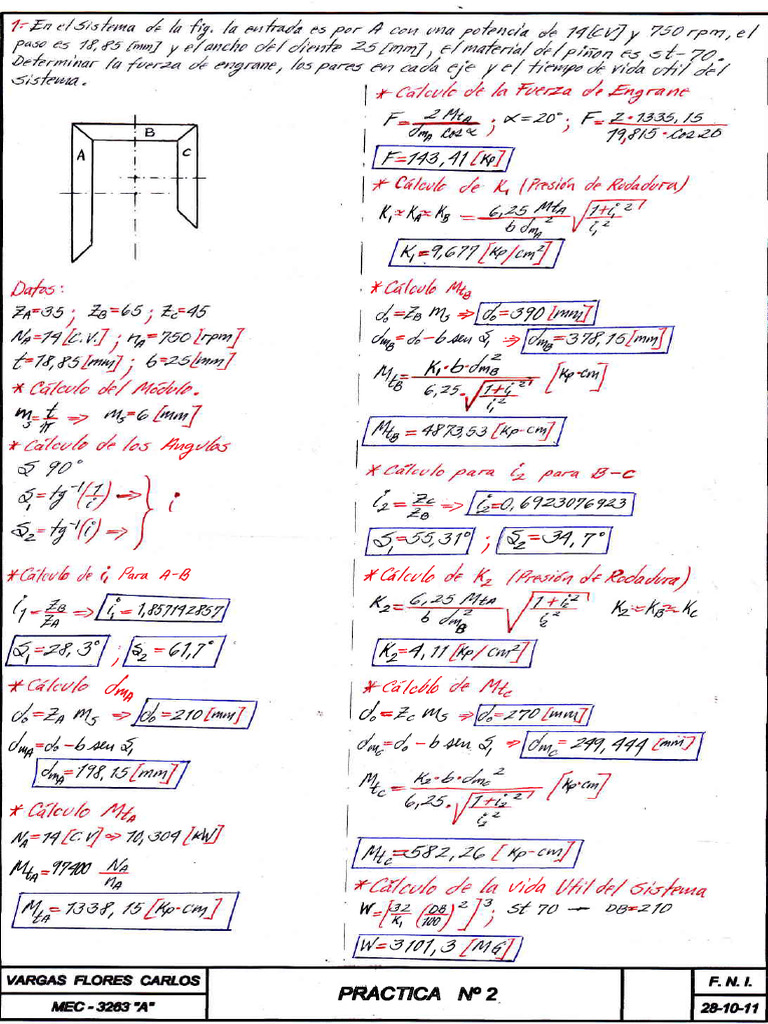 1- En el Sistema de la fig. la entrada es por A con una potencia de 14[CV] y 750 rpm, el
paso es 18,85 [mm] y el ancho del diente 25 [mm], el material del piñon es st-70.
Determinar la fuerza de engrane, los pares en cada eje y el tiempo de vida util del
sistema.
A
B
C
Datos:
ZA=35 ; ZB=65 ; ZC=45
NA=14[C.V.] ; nA=750[rpm]
t=18,85[mm] ; b=25[mm]
* Cálculo del Módulo.
ms=t/π => ms=6[mm]
* Cálculo de los Angulos
S 90°
S1=tg⁻¹(1/i) =>
S2=tg⁻¹(i) =>
} i
* Cálculo de i1 Para A-B
i1=ZB/ZA => i1=1,857192857
S1=28,3° ; S2=61,7°
* Cálculo dmA
do=ZA ms => do=210[mm]
dmA=do-b sen S1
dmA=198,15[mm]
* Cálculo MtA
NA=14[C.V] => 10,304[KW]
MtA=97400 NA/nA
MtA=1338,15[Kp-cm]
* Cálculo de la Fuerza de Engrane
F=2 MtA/(dmA cos α) ; α=20° ; F=2*1335,15/(19,815*cos20)
F=143,41[Kp]
* Cálculo de K1 (Presión de Rodadura)
K1≈KA≈KB = 6,25 MtA/(b dmA²) √((1+i1²)/i1²)
K1=9,677[Kp/cm²]
* Cálculo MtB
do=ZB ms => do=390[mm]
dmB=do-b sen S1 => dmB=378,15[mm]
MtB=K1·b·dmB²/(6,25·√((1+i1²)/i1²)) [Kp-cm]
MtB=4873,53[Kp-cm]
* Cálculo para i2 para B-C
i2=ZC/ZB => i2=0,6923076923
S1=55,31° ; S2=34,7°
* Cálculo de K2 (Presión de Rodadura)
K2=6,25 MtA/(b dmB²) √((1+i2²)/i2²) K2≈KB≈KC
K2=4,11[Kp/cm²]
* Calcblo de MtC
do=ZC ms => do=270[mm]
dmC=do-b sen S1 => dmC=249,444[mm]
MtC=K2·b·dmC²/(6,25·√((1+i2²)/i2²)) [Kp-cm]
MtC=582,26[Kp-cm]
* Cálculo de la vida Util del Sistema
W=[32/K1 (DB/100)²]³ ; st 70 — DB=210
W=3101,3[MG]
VARGAS FLORES CARLOS
MEC - 3263 "A"
PRACTICA Nº 2
F. N. I.
28-10-11